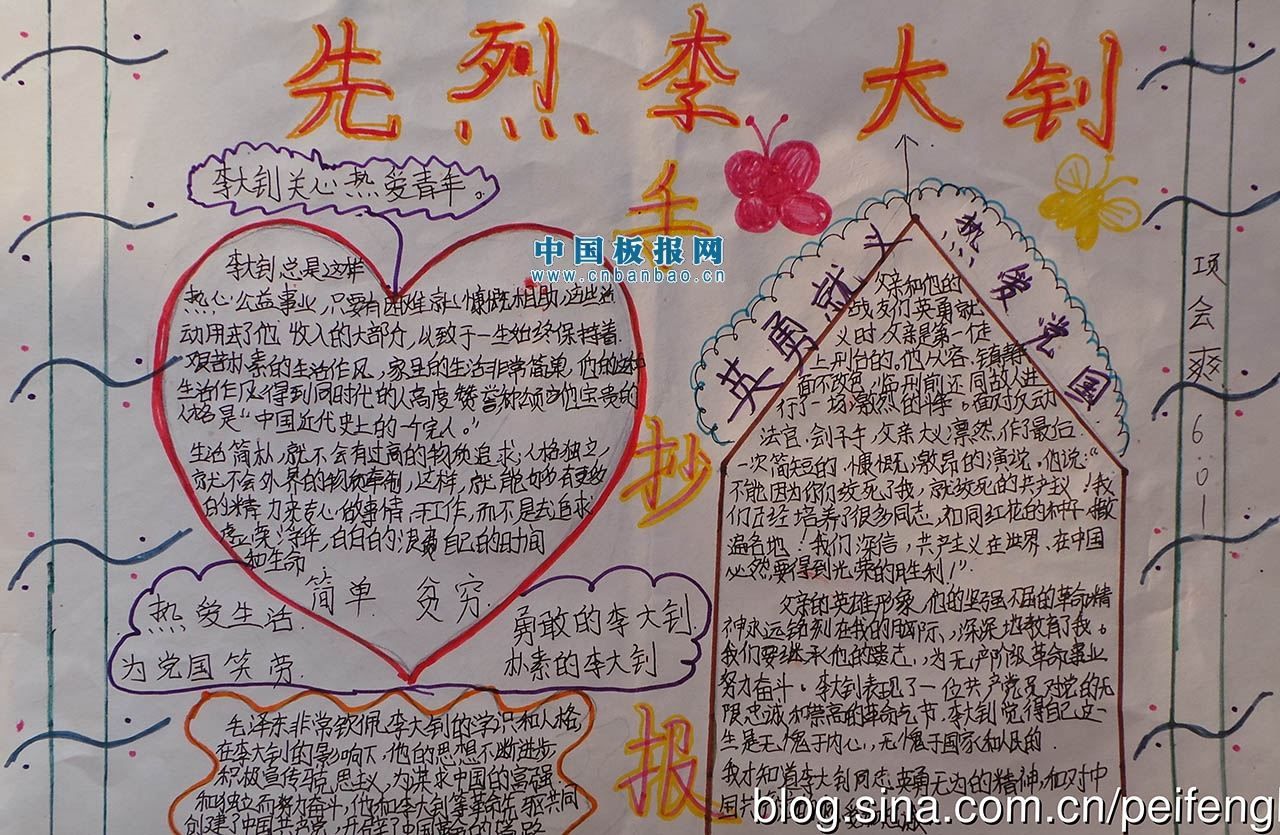 先烈李大钊
手抄报
李大钊关心热爱青年。
中国板报网
www.cnbanbao.cn
李大钊总是这样
热心公益事业，只要有困难就慷慨相助，这些活
动用去了他收入的大部分，以致于一生始终保持着
艰苦朴素的生活作风，家里的生活非常简单，他的这种
生活作风得到同时代的人高度赞誉称颂他宝贵的
人格是“中国近代史上的一个完人。”
生活简朴，就不会有过高的物质追求；人格独立，
就不会外界的物质牵制，这样，就能够有更多
的精力来专心做事情，干工作，而不是去追求
虚荣浮华，白白的浪费自己的时间
和生命
简单 贫穷
热爱生活
为党国笑劳
勇敢的李大钊
朴素的李大钊
毛泽东非常钦佩李大钊的学识和人格，
在李大钊的影响下，他的思想不断进步
积极宣传马克思主义，为谋求中国的富强
和独立而努力奋斗，他和李大钊等革命先驱共同
创建了中国共产党，开辟了中国
英勇就义
热爱党国
父亲和他的
战友们英勇就
义时，父亲是第一个走
上刑台的。他从容、镇静
面不改色，临刑前还同敌人进
行了一场激烈的斗争。面对反动
法官、刽子手，父亲大义凛然，作了最后
一次简短的、慷慨激昂的演说，他说：“
不能因为你们绞死了我，就绞死的共产主义！我
们已经培养了很多同志，如同红花的种子，撒
遍各地！我们深信，共产主义在世界、在中国
必然要得到光荣的胜利！”
父亲的英雄形象、他的坚强不屈的革命精
神永远铭刻在我的脑际，深深地教育了我。
我们要继承他的遗志，为无产阶级革命事业
努力奋斗。李大钊表现了一位共产党员对党的无
限忠诚和崇高的革命气节，李大钊觉得自己这一
生是无愧于内心，无愧于国家和人民的．
我才知道李大钊同志英勇无为的精神，和对中
国共
项会爽 6.01
blog.sina.com.cn/peifeng